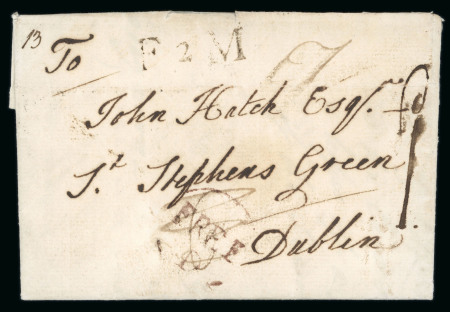 13
To
F 2 M
John Hatch Esqr.
St Stephens Green
FREE
Dublin